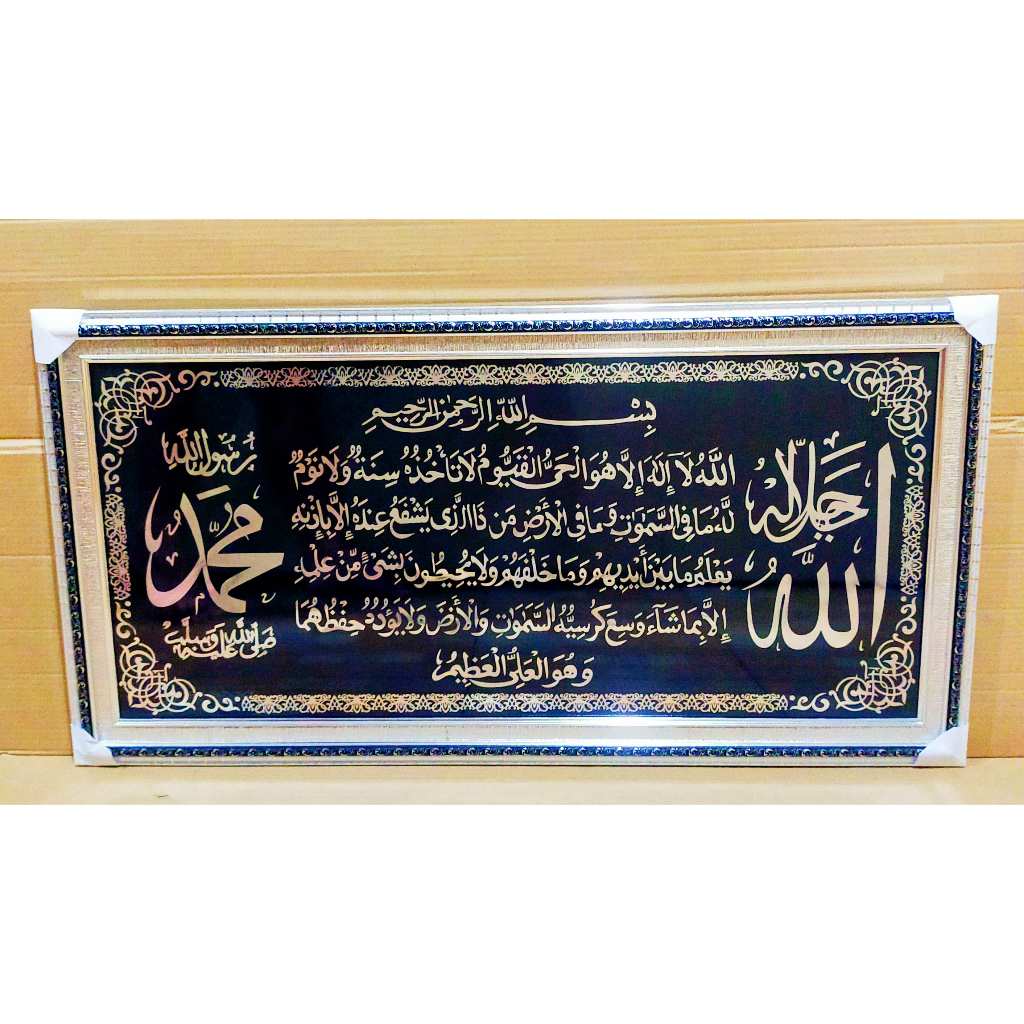 بِسْمِ اللّٰهِ الرَّحْمٰنِ الرَّحِيمِ
اللّٰهُ لَآ إِلٰهَ إِلَّا هُوَ الْحَىُّ الْقَيُّومُ لَا تَأْخُذُهُ سِنَةٌ وَلَا نَوْمٌ
لَّهُ مَا فِى السَّمٰوَاتِ وَمَا فِى الْأَرْضِ مَن ذَا الَّذِى يَشْفَعُ عِنْدَهُ إِلَّا بِإِذْنِهِ
يَعْلَمُ مَا بَيْنَ أَيْدِيهِمْ وَمَا خَلْفَهُمْ وَلَا يُحِيطُونَ بِشَىْءٍ مِّنْ عِلْمِهِ
إِلَّا بِمَا شَآءَ وَسِعَ كُرْسِيُّهُ السَّمٰوَاتِ وَالْأَرْضَ وَلَا يَؤُدُهُ حِفْظُهُمَا
وَهُوَ الْعَلِىُّ الْعَظِيمُ
اللّٰه
جَلَّ جَلَالُهُ
مُحَمَّد
رَسُولُ اللّٰهِ
صَلَّى اللّٰهُ عَلَيْهِ وَسَلَّمَ